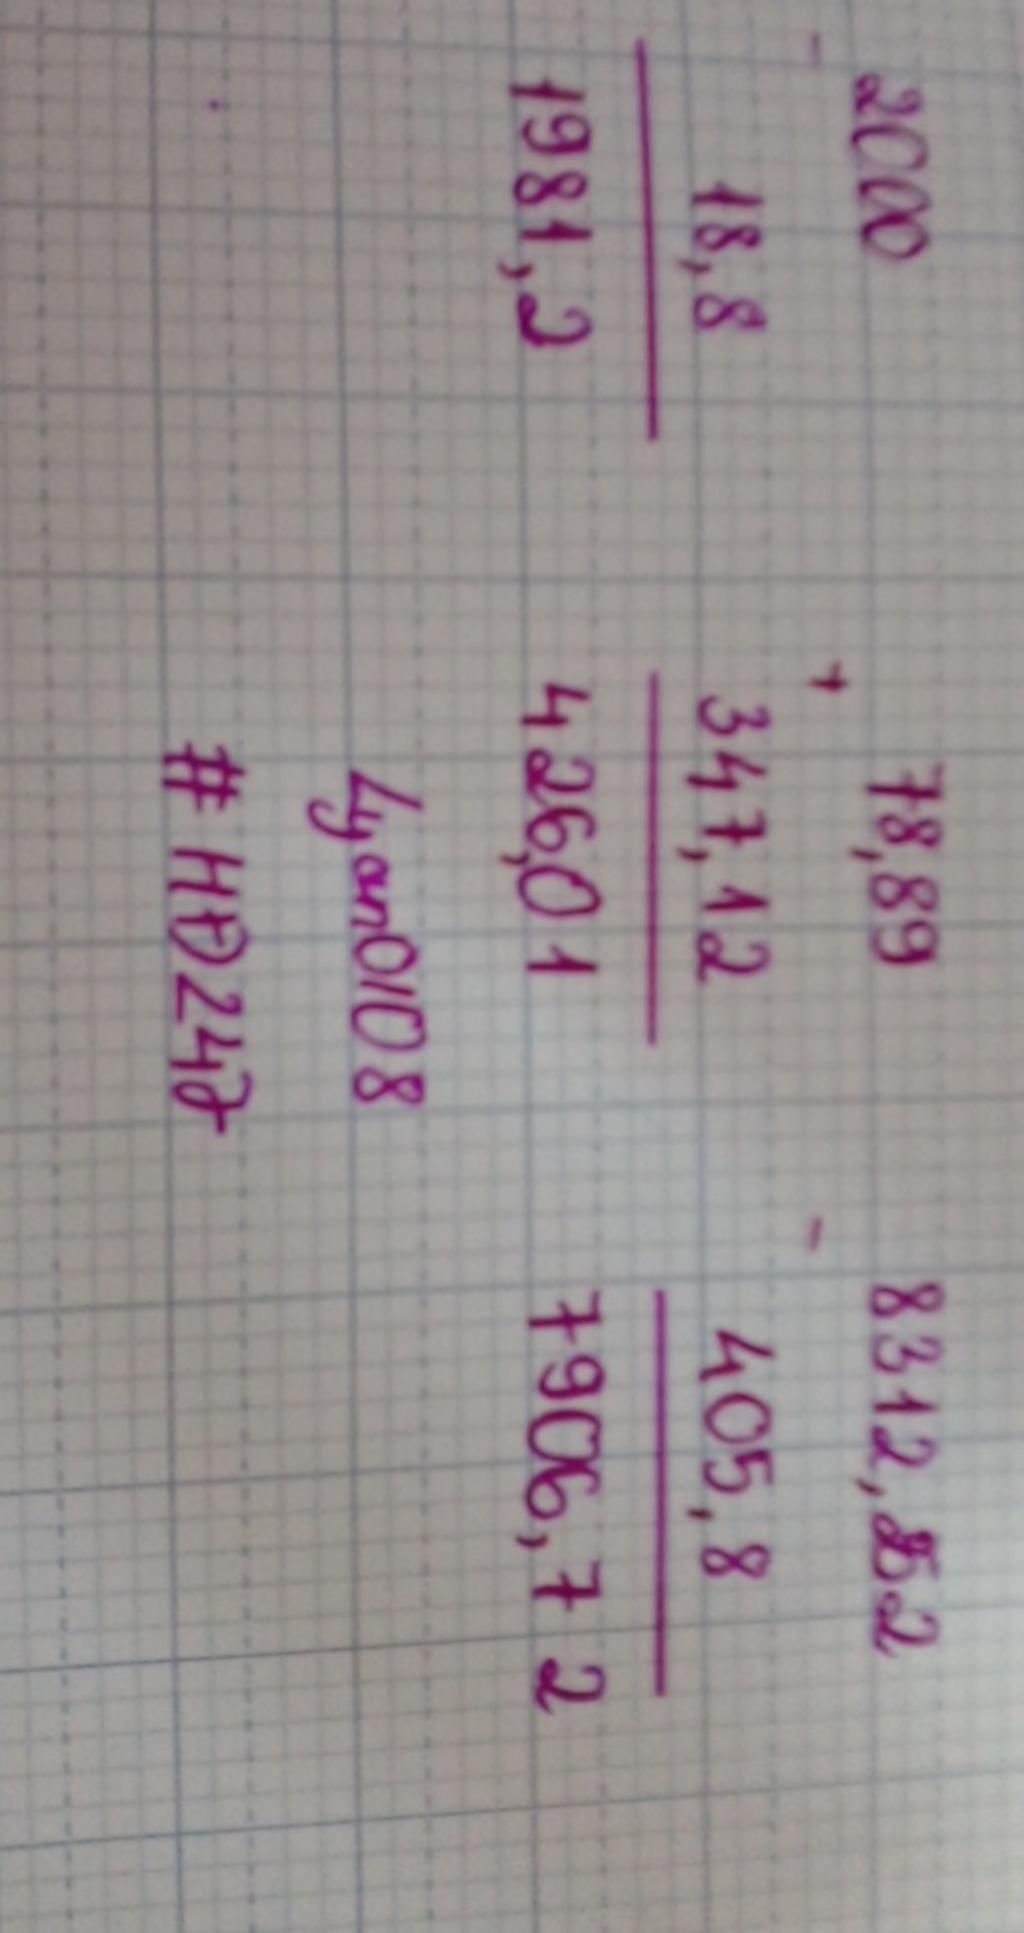 - 2000 + 78,89 - 8312,52
18,8 347,12 405,8
1981,2 426,01 7906,72
Lyon0108
#HĐ247